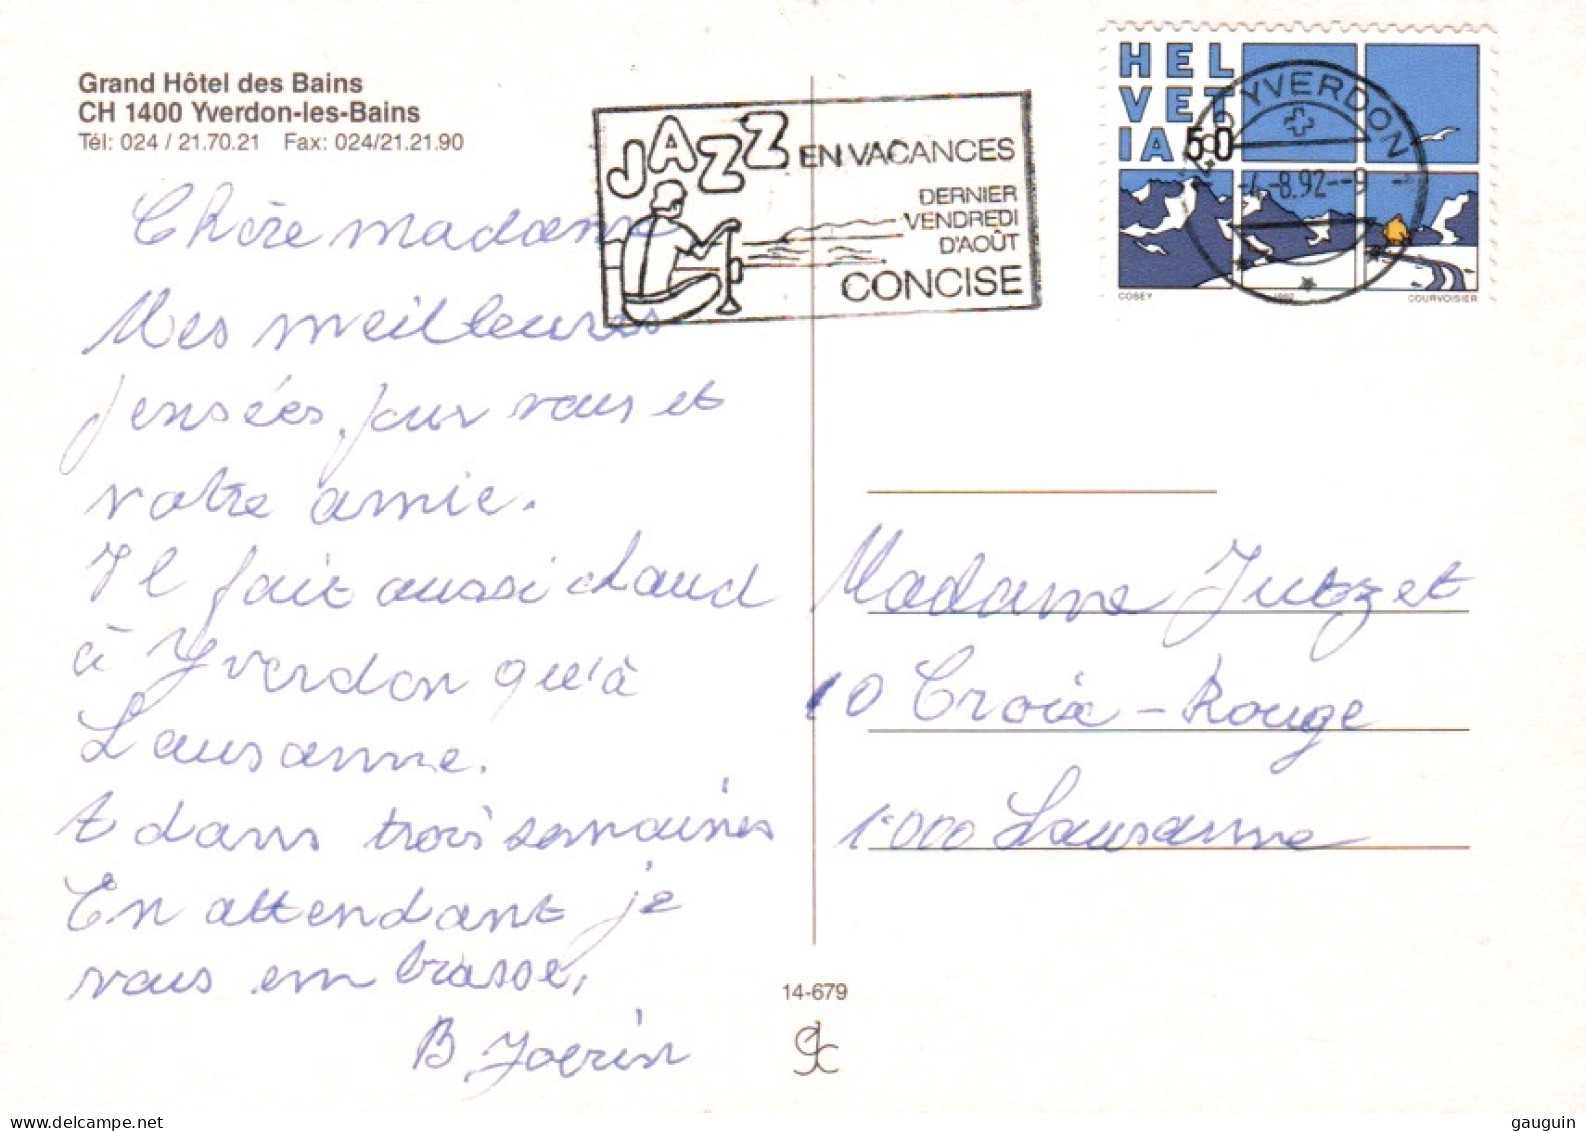 Grand Hôtel des Bains
CH 1400 Yverdon-les-Bains
Tél: 024 / 21.70.21 Fax: 024/21.21.90
Chère madame
Mes meilleures
pensées, pour vous et
votre amie.
Il fait aussi chaud
à Yverdon qu'à
Lausanne.
A dans trois semaines
En attendant je
vous em brasse,
B Joerin
JAZZ EN VACANCES
DERNIER
VENDREDI
D'AOÛT
CONCISE
HEL
VET
IA 50
1400 YVERDON
-4.-8.92--9
COSEY 1992 COURVOISIER
Madame Jutzet
10 Croix-Rouge
1000 Lausanne
14-679
delcampe.net
gauguin